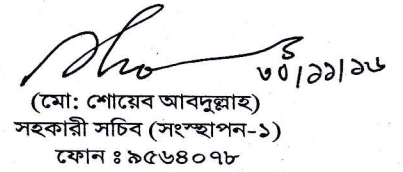 ৩০/১১/১৬
(মো: শোয়েব আবদুল্লাহ)
সহকারী সচিব (সংস্হাপন-১)
ফোন ঃ ৯৫৬৪০৭৮